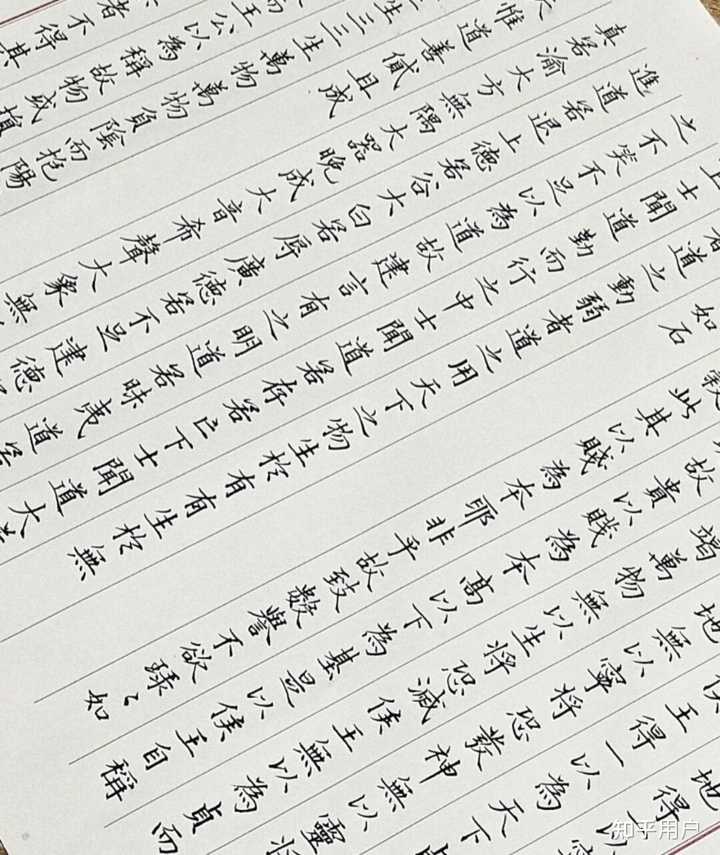 地得一以
侯王得一以為天下貞
地無以寧將恐發神無以靈將
竭萬物無以生將恐滅侯王無以為貞而
故貴以賤為本高以下為基是以侯王自稱
此其以賤為本邪非乎故致數譽不欲琭〻如
如石
者道之動弱者道之用天下之物生於有有生於無
士聞道勤而行之中士聞道若存若亡下士聞道大笑
之不笑不足以為道故建言有之明道若昧夷道若
進道若退上德若谷大白若辱廣德若不足建德
真若渝大方無隅大器晚成大音希聲大象無
惟道善貸且成
生三三生萬物萬物負陰而抱陽
王公以為稱故物或損
者不得其
知乎用户